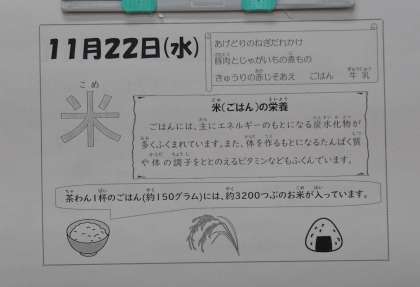 11月22日(水)
あげどりのねぎだれかけ
豚肉とじゃがいもの煮もの
きゅうりの赤じそあえ　ごはん　牛乳
こめ
米
米(ごはん)の栄養
ごはんには、主にエネルギーのもとになる炭水化物が
多くふくまれています。また、体を作るもとになるたんぱく質
や体の調子をととのえるビタミンなどもふくんでいます。
茶わん1杯のごはん(約150グラム)には、約3200つぶのお米が入っています。